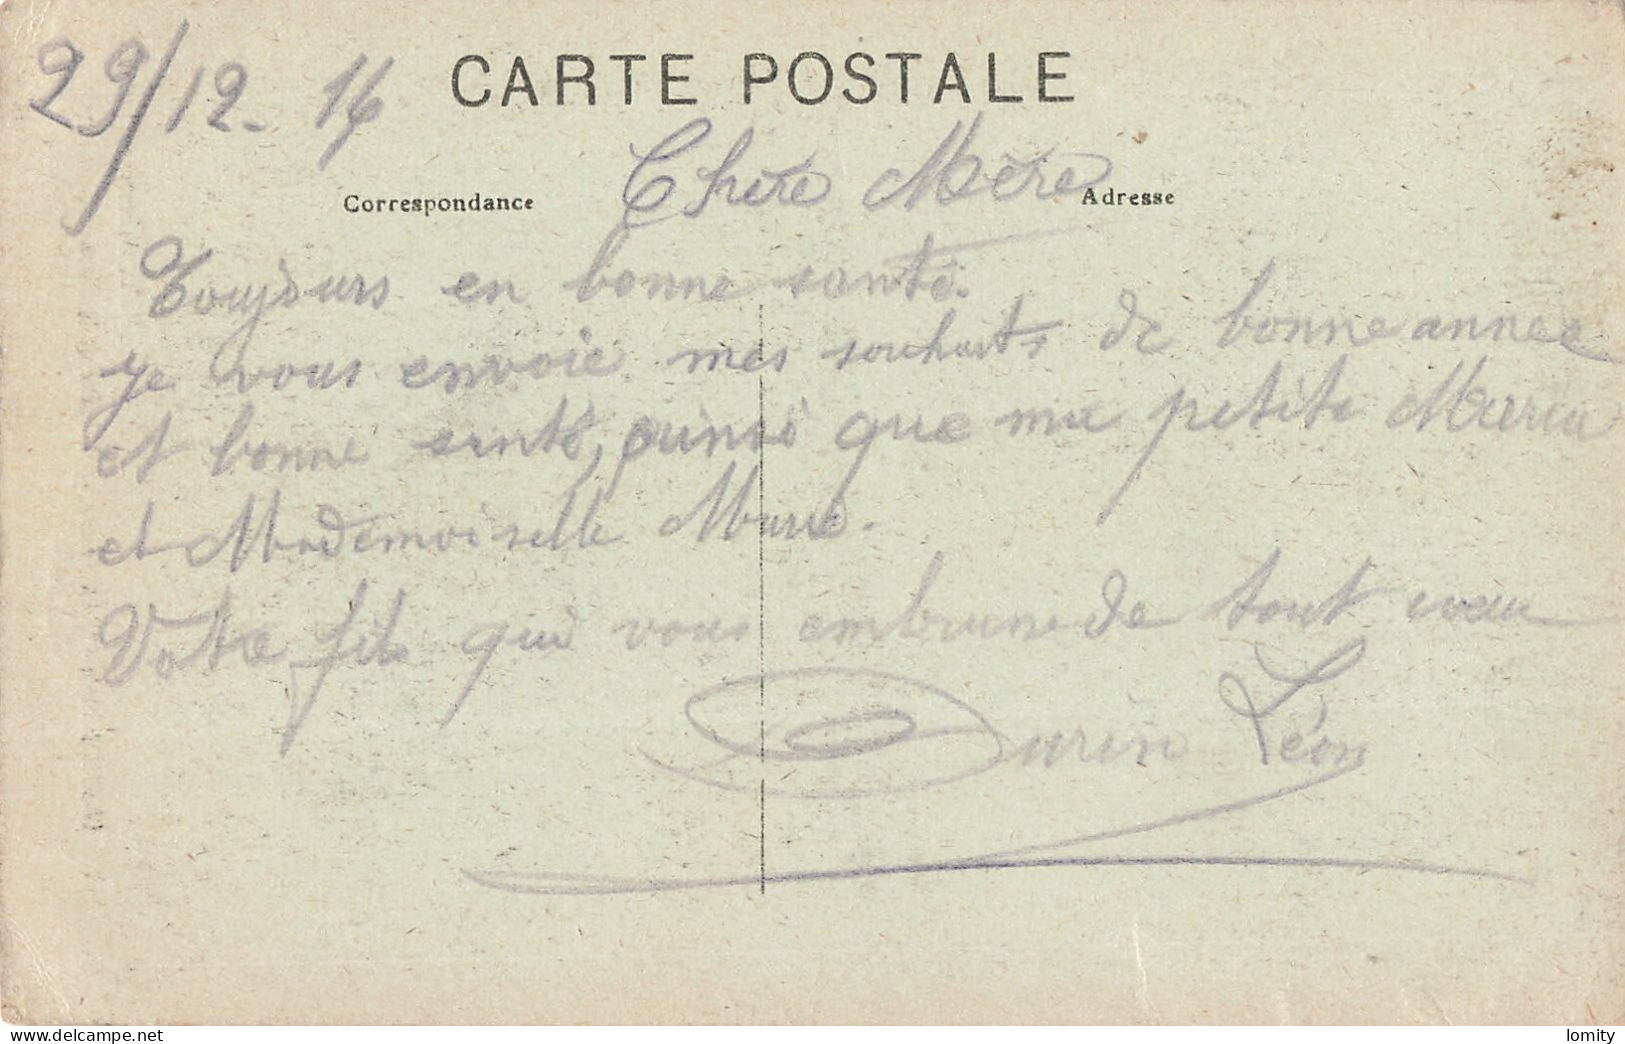 29/12. 16
CARTE POSTALE
Correspondance
Chère Mère
Adresse
Toujours en bonne santé.
Je vous envoie mes souhaits de bonne année
et bonne santé, ainsi que ma petite Maria
et Mademoiselle Marie.
Votre fils qui vous embrasse de tout cœur
Durin Léon
www.delcampe.net
lomity